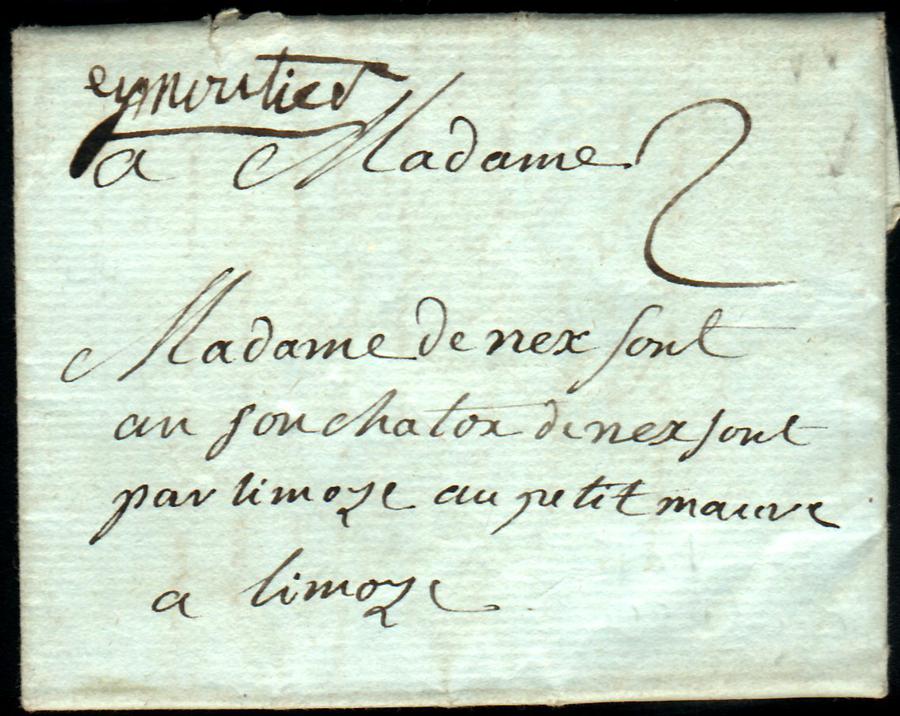 eymoutier
a Madame 2
Madame de nexsont
an son chatox de nexsont
par limoze au petit maure
a limoze